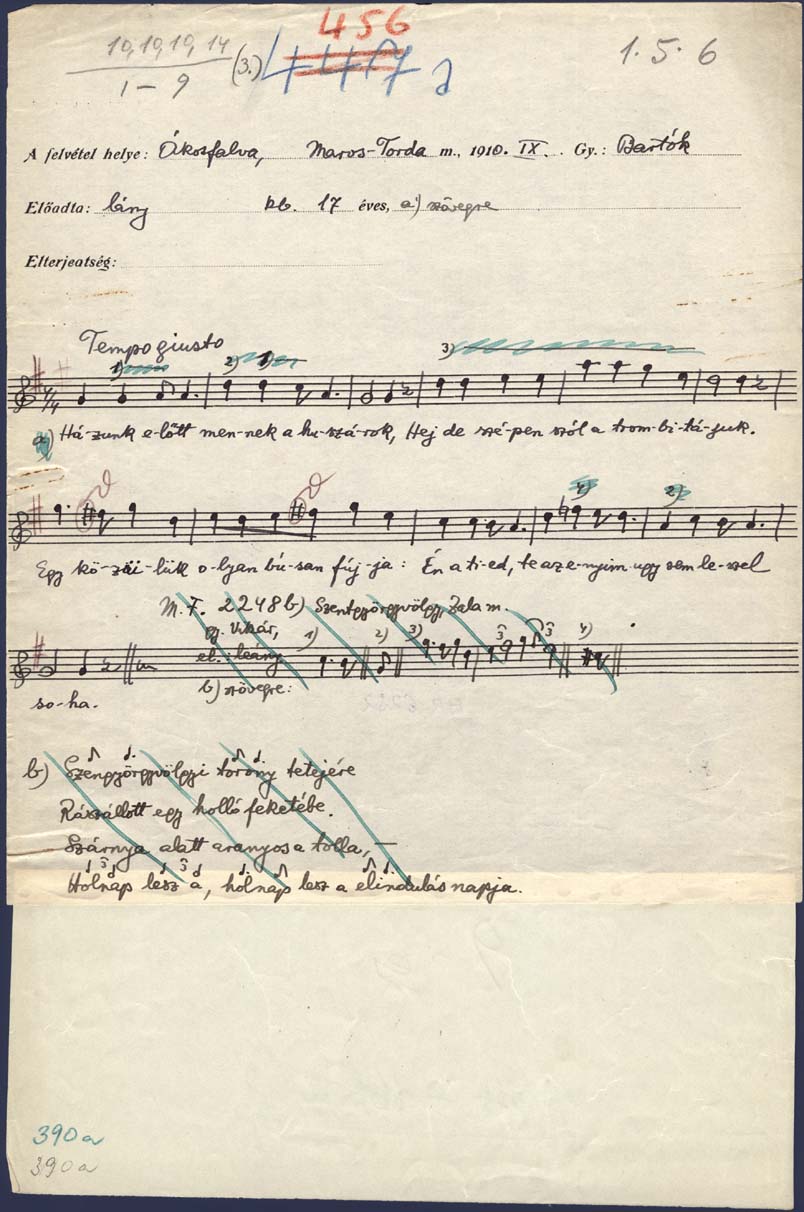 456
10, 10, 10, 14 (3.) 1. 5. 6
1 – 9
A felvétel helye: Ákosfalva, Maros-Torda m., 1910. IX. Gy.: Bartók
Előadta: lány kb. 17 éves, a) szövegre
Elterjedtség:
Tempo giusto
1) 2) 3)
4/4
a) Há-zunk e-lőtt men-nek a hu-szá-rok, Hej de szé-pen szól a trom-bi-tá-juk.
4) 2)
Egy kö-zü-lük o-lyan bú-san fúj-ja: Én a ti-ed, te az e-nyim ugy sem le-szel
M. F. 2248b) Szentgyörgyvölgy, Zala m.
gy. Vikár,
el.: leány
b) szövegre:
1) 2) 3) 3 3 4)
so-ha.
b) Szengyörgyvölgyi torony tetejére
Rászállott egy holló feketébe.
Szárnya alatt aranyos a tolla, –
3 3
Hólnap lesz a, hólnap lesz a elindulás napja.
390a
390a